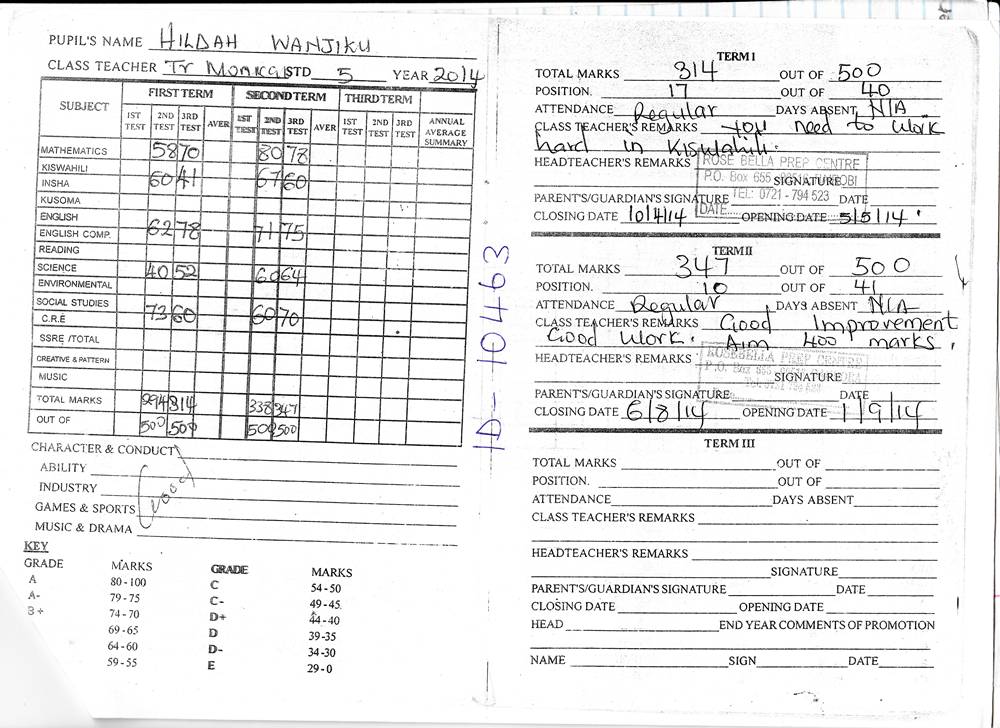 PUPIL'S NAME HILDAH WANJIKU
CLASS TEACHER Tr Monica STD 5 YEAR 2014
SUBJECT FIRST TERM SECOND TERM THIRD TERM ANNUAL AVERAGE SUMMARY
1ST TEST 2ND TEST 3RD TEST AVER 1ST TEST 2ND TEST 3RD TEST AVER 1ST TEST 2ND TEST 3RD TEST
MATHEMATICS 58 70 80 78
KISWAHILI
INSHA 60 41 67 60
KUSOMA
ENGLISH
ENGLISH COMP. 62 78 71 75
READING
SCIENCE 40 52 60 64
ENVIRONMENTAL
SOCIAL STUDIES
C.R.E 73 60 60 70
SSRE /TOTAL
CREATIVE & PATTERN
MUSIC
TOTAL MARKS 294 314 338 347
OUT OF 500 500 500 500
CHARACTER & CONDUCT
ABILITY
INDUSTRY Good
GAMES & SPORTS
MUSIC & DRAMA
KEY
GRADE MARKS GRADE MARKS
A 80-100 C 54-50
A- 79-75 C- 49-45
B+ 74-70 D+ 44-40
69-65 D 39-35
64-60 D- 34-30
59-55 E 29-0
ID-10463
TERM I
TOTAL MARKS 314 OUT OF 500
POSITION. 17 OUT OF 40
ATTENDANCE Regular DAYS ABSENT N/A
CLASS TEACHER'S REMARKS You need to work
hard in Kiswahili.
HEADTEACHER'S REMARKS ROSE BELLA PREP CENTRE
P.O. Box 655 SIGNATURE
PARENT'S/GUARDIAN'S SIGNATURE TEL: 0721-794 523 DATE
CLOSING DATE 10/4/14 DATE OPENING DATE 5/5/14
TERM II
TOTAL MARKS 347 OUT OF 500
POSITION. 10 OUT OF 41
ATTENDANCE Regular DAYS ABSENT N/A
CLASS TEACHER'S REMARKS Good Improvement
Good Work. Aim 400 marks.
HEADTEACHER'S REMARKS ROSEBELLA PREP CENTRE
P.O. Box 655 SIGNATURE
PARENT'S/GUARDIAN'S SIGNATURE DATE
CLOSING DATE 6/8/14 OPENING DATE 1/9/14
TERM III
TOTAL MARKS OUT OF
POSITION. OUT OF
ATTENDANCE DAYS ABSENT
CLASS TEACHER'S REMARKS
HEADTEACHER'S REMARKS
SIGNATURE
PARENT'S/GUARDIAN'S SIGNATURE DATE
CLOSING DATE OPENING DATE
HEAD END YEAR COMMENTS OF PROMOTION
NAME SIGN DATE